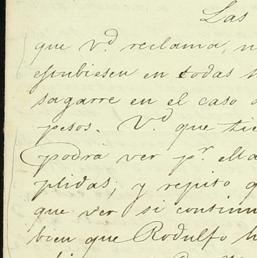 Las
que V.d reclama, n
estubiesen en todas
sagarre en el caso
pesos. V.d que tie
podrá ver p.r ella
plidas; y repito q
que ver si continu
bien que Rodulfo h